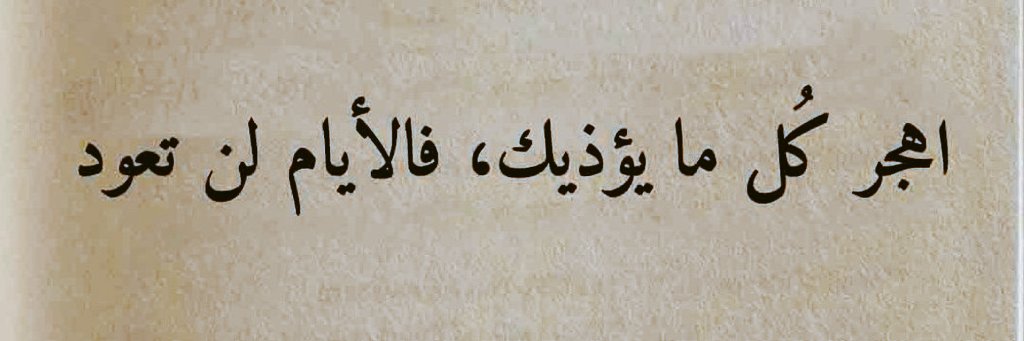 اهجر كُل ما يؤذيك، فالأيام لن تعود